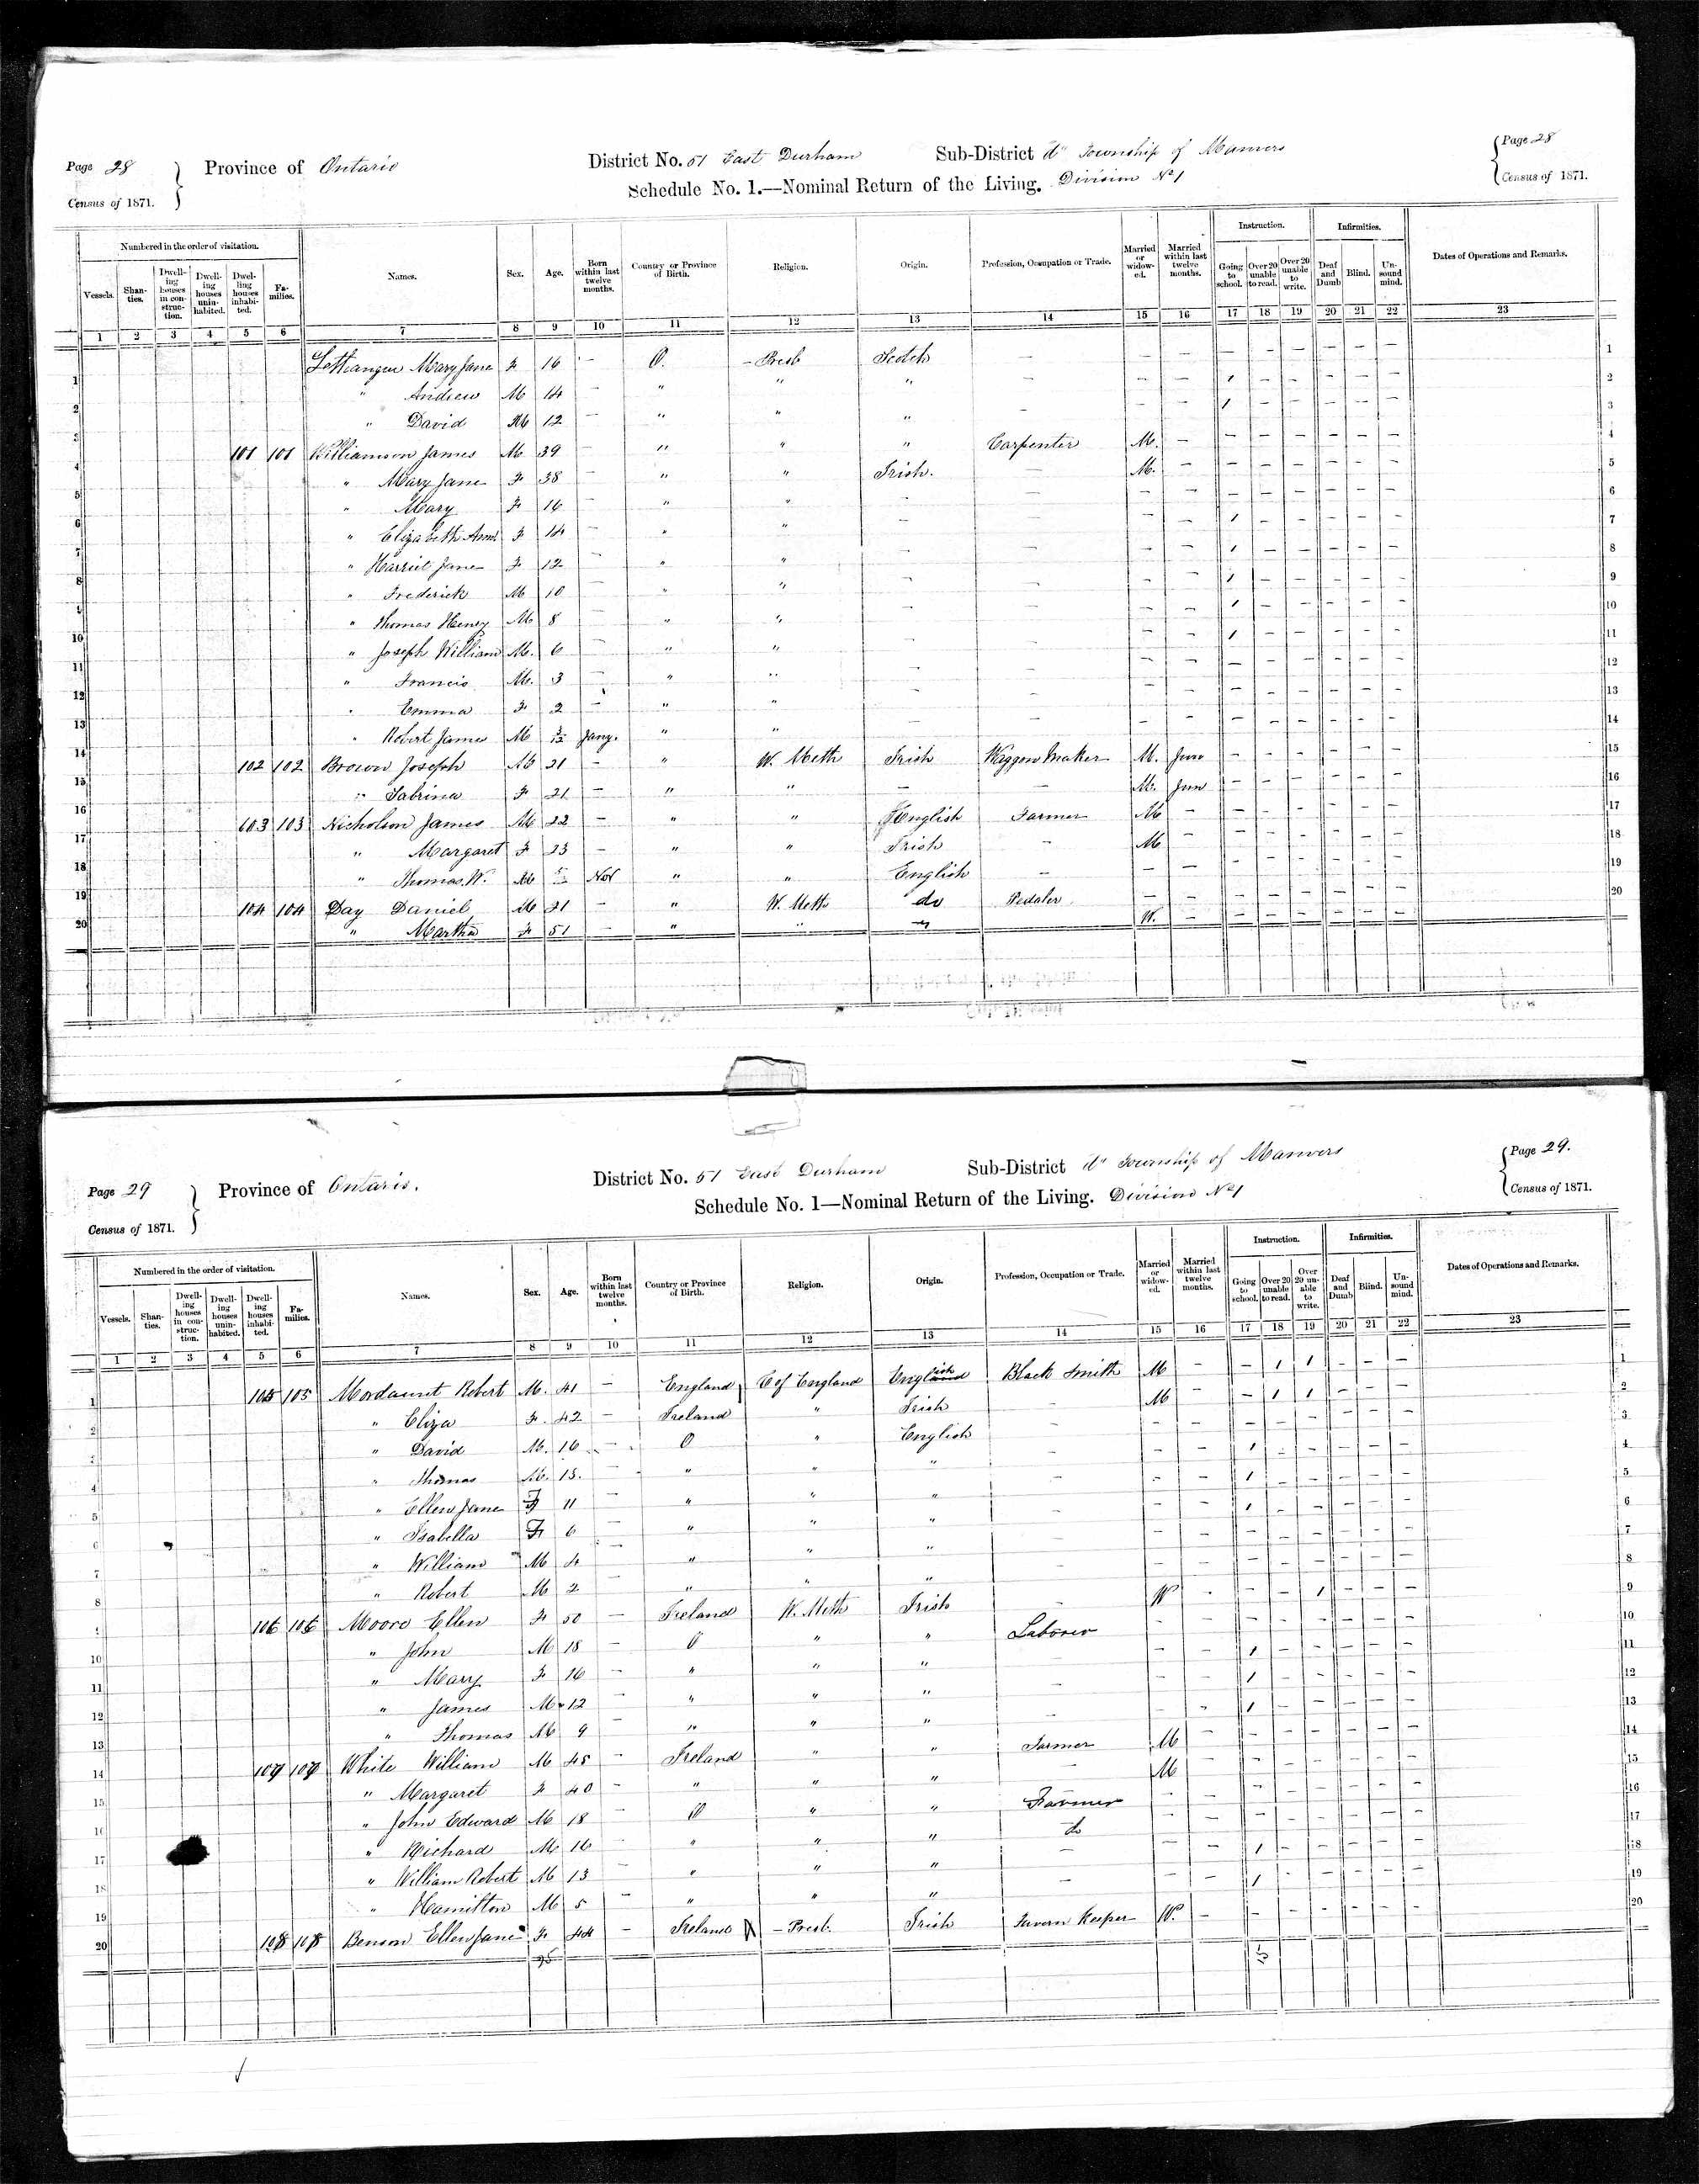 Page 28
Census of 1871.
Province of Ontario
District No. 51 East Durham
Sub-District Township of Manvers
Schedule No. 1.—Nominal Return of the Living. Division No 1
Page 28
Census of 1871.
Numbered in the order of visitation.
Vessels. Shanties. Dwelling houses in construction. Dwelling houses uninhabited. Dwelling houses inhabited. Families.
Names. Sex. Age. Born within last twelve months. Country or Province of Birth. Religion. Origin. Profession, Occupation or Trade. Married or widowed. Married within last twelve months.
Instruction. Going to school. Over 20 unable to read. Over 20 unable to write.
Infirmities. Deaf and Dumb Blind. Unsound mind.
Dates of Operations and Remarks.
1 2 3 4 5 6 7 8 9 10 11 12 13 14 15 16 17 18 19 20 21 22 23
1 Mary Jane F 16 – O. – Presb Scotch – – – – – – – – – 1
2 " Andrew M 14 – " " " – – – 1 – – – – – 2
3 " David M 12 – " " " – – – 1 – – – – – 3
4 101 101 Williamson James M 39 – " " " Carpenter M. – – – – – – – 4
5 " Mary Jane F 38 – " " Irish. – M. – – – – – – – 5
6 " Mary F 16 – " " – – – – – – – – – – 6
7 " Elizabeth Ann F 14 – " " – – – – 1 – – – – – 7
8 " Harriet Jane F 12 – " " – – – – 1 – – – – – 8
9 " Frederick M 10 – " " – – – – 1 – – – – – 9
10 " Thomas Henry M 8 – " " – – – – 1 – – – – – 10
11 " Joseph William M. 6 – " " – – – – 1 – – – – – 11
12 " Francis M. 3 – " " – – – – – – – – – – 12
13 " Emma F 2 – " " – – – – – – – – – – 13
14 " Robert James M 3/12 Jany. " " – – – – – – – – – – 14
15 102 102 Brown Joseph M 21 – " W. Meth Irish Waggon Maker M. Jun – – – – – – 15
16 " Sabrina F 21 – " " – – M. Jun – – – – – – 16
17 103 103 Nicholson James M 22 – " " English Farmer M – – – – – – – 17
18 " Margaret F 23 – " " Irish – M – – – – – – – 18
19 " Thomas W. M Nov " " English – – – – – – – – 19
20 104 104 Day Daniel M 21 – " W. Meth do Pedaler – – – – – – – – 20
" Martha F 51 – " " " W. – – – – – – –
Page 29
Census of 1871.
Province of Ontario.
District No. 51 East Durham
Sub-District Township of Manvers
Schedule No. 1—Nominal Return of the Living. Division No 1
Page 29.
Census of 1871.
Numbered in the order of visitation.
Vessels. Shanties. Dwelling houses in construction. Dwelling houses uninhabited. Dwelling houses inhabited. Families.
Names. Sex. Age. Born within last twelve months. Country or Province of Birth. Religion. Origin. Profession, Occupation or Trade. Married or widowed. Married within last twelve months.
Instruction. Going to school. Over 20 unable to read. Over 20 unable to write.
Infirmities. Deaf and Dumb Blind. Unsound mind.
Dates of Operations and Remarks.
1 2 3 4 5 6 7 8 9 10 11 12 13 14 15 16 17 18 19 20 21 22 23
1 105 105 Mordaunt Robert M. 41 – England C of England English Black Smith M – – 1 1 – – – 1
2 " Eliza F. 42 – Ireland " Irish – M – – 1 1 – – – 2
3 " David M. 16 – O " English – – – – – – – – – 3
4 " Thomas M. 13. – " " " – – – 1 – – – – – 4
5 " Ellen Jane F 11 – " " " – – – 1 – – – – – 5
6 " Isabella F 6 – " " " – – – 1 – – – – – 6
7 " William M 4 – " " " – – – – – – – – – 7
8 " Robert M 2 – " " " – – – – – – – – – 8
9 106 106 Moore Ellen F 50 – Ireland W. Meth Irish – W – – – 1 – – – 9
10 " John M 18 – O " " Laborer – – – – – – – – 10
11 " Mary F 16 – " " " – – – 1 – – – – – 11
12 " James M 12 – " " " – – – 1 – – – – – 12
13 " Thomas M 9 – " " " – – – 1 – – – – – 13
14 107 107 White William M 45 – Ireland " " Farmer M – – – – – – – 14
15 " Margaret F 40 – " " " – M – – – – – – – 15
16 " John Edward M 18 – O " " Farmer – – – – – – – – 16
17 " Richard M 16 – " " " do – – – – – – – – 17
18 " William Robert M 13 – " " " – – – 1 – – – – – 18
19 " Hamilton M 5 – " " " – – – 1 – – – – – 19
20 108 108 Benson Ellen Jane F 44 – Ireland – Presb. Irish Tavern Keeper W. – – – – – – – 20